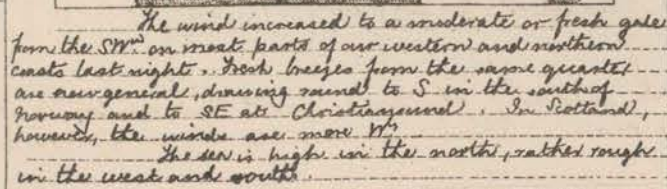 The wind increased to a moderate or fresh gale
from the SWnd on most parts of our western and northern
coasts last night. Fresh breezes from the same quarter
are now general, drawing round to S in the south of
Norway and to SE at Christiansund. In Scotland,
however, the winds are more Wly
The sea is high in the north, rather rough
in the west and south.